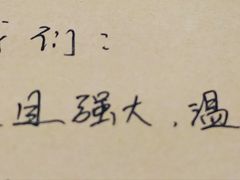 们：
且强大，温